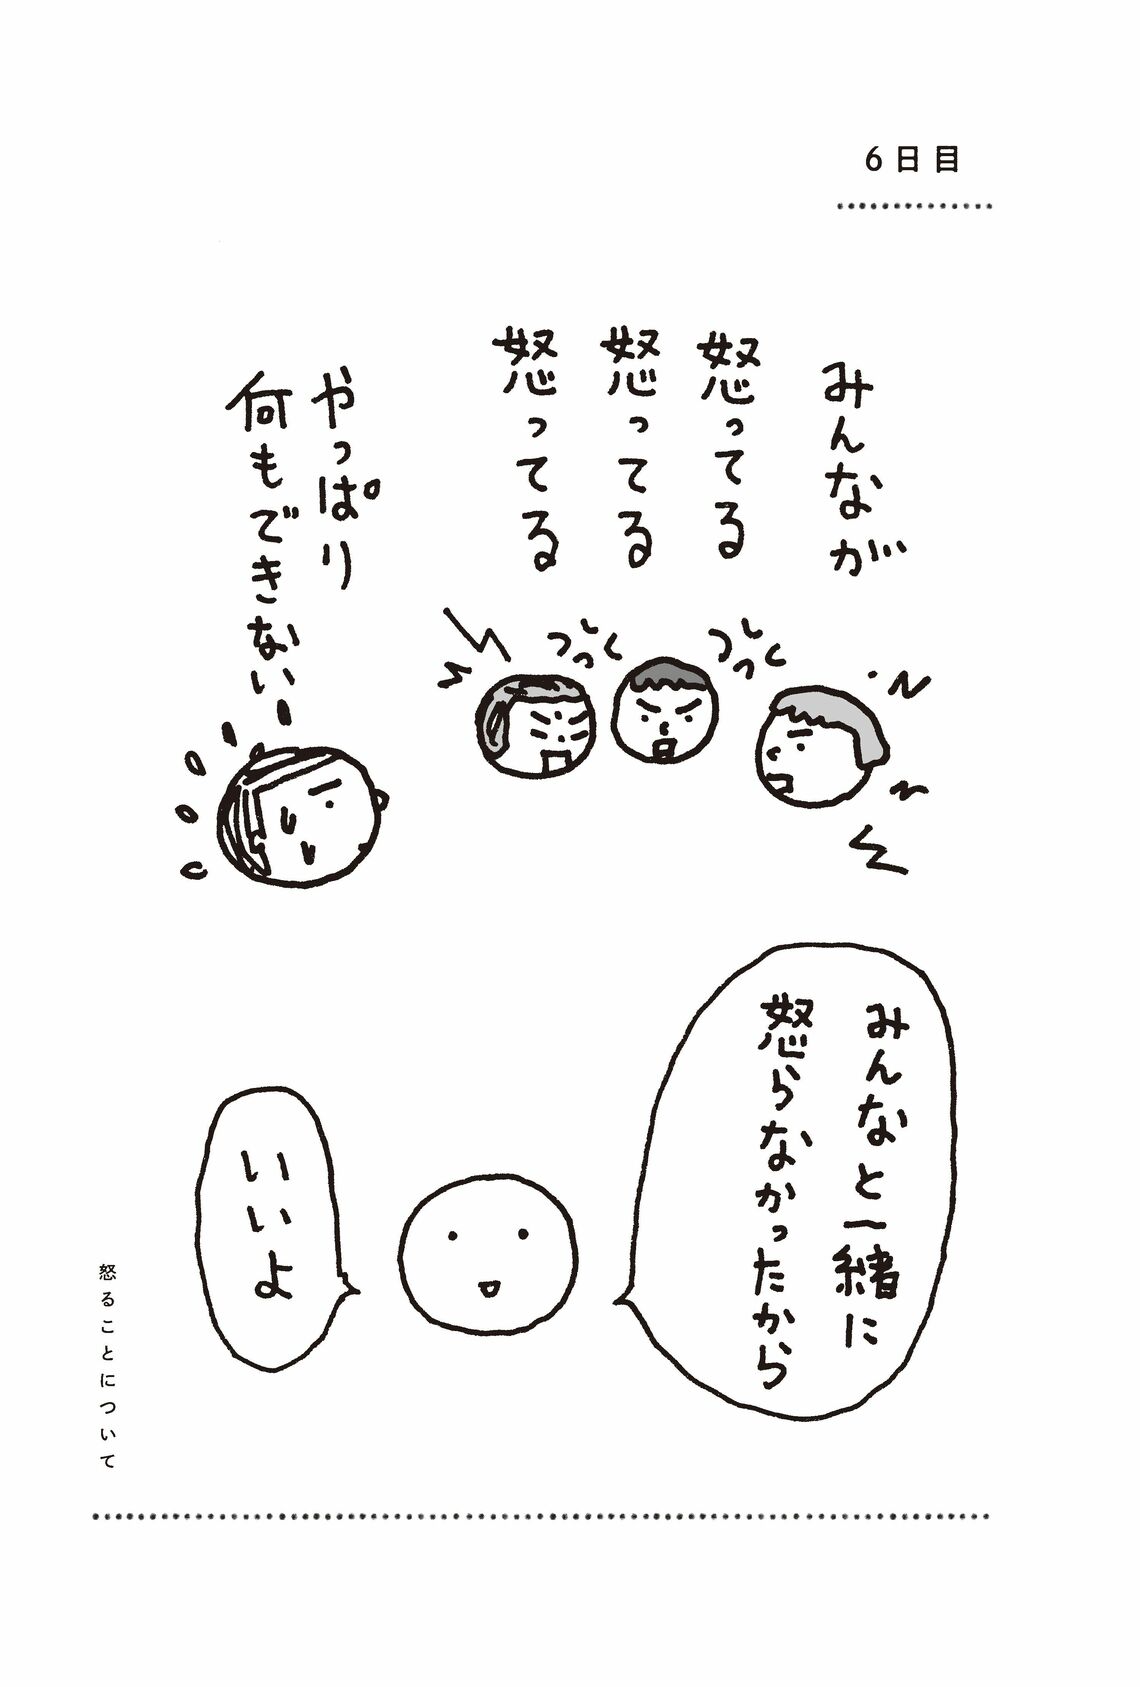 6日目
みんなが
怒ってる
怒ってる
怒ってる
やっぱり
何もできない
みんなと一緒に
怒らなかったから
いいよ
怒ることについて